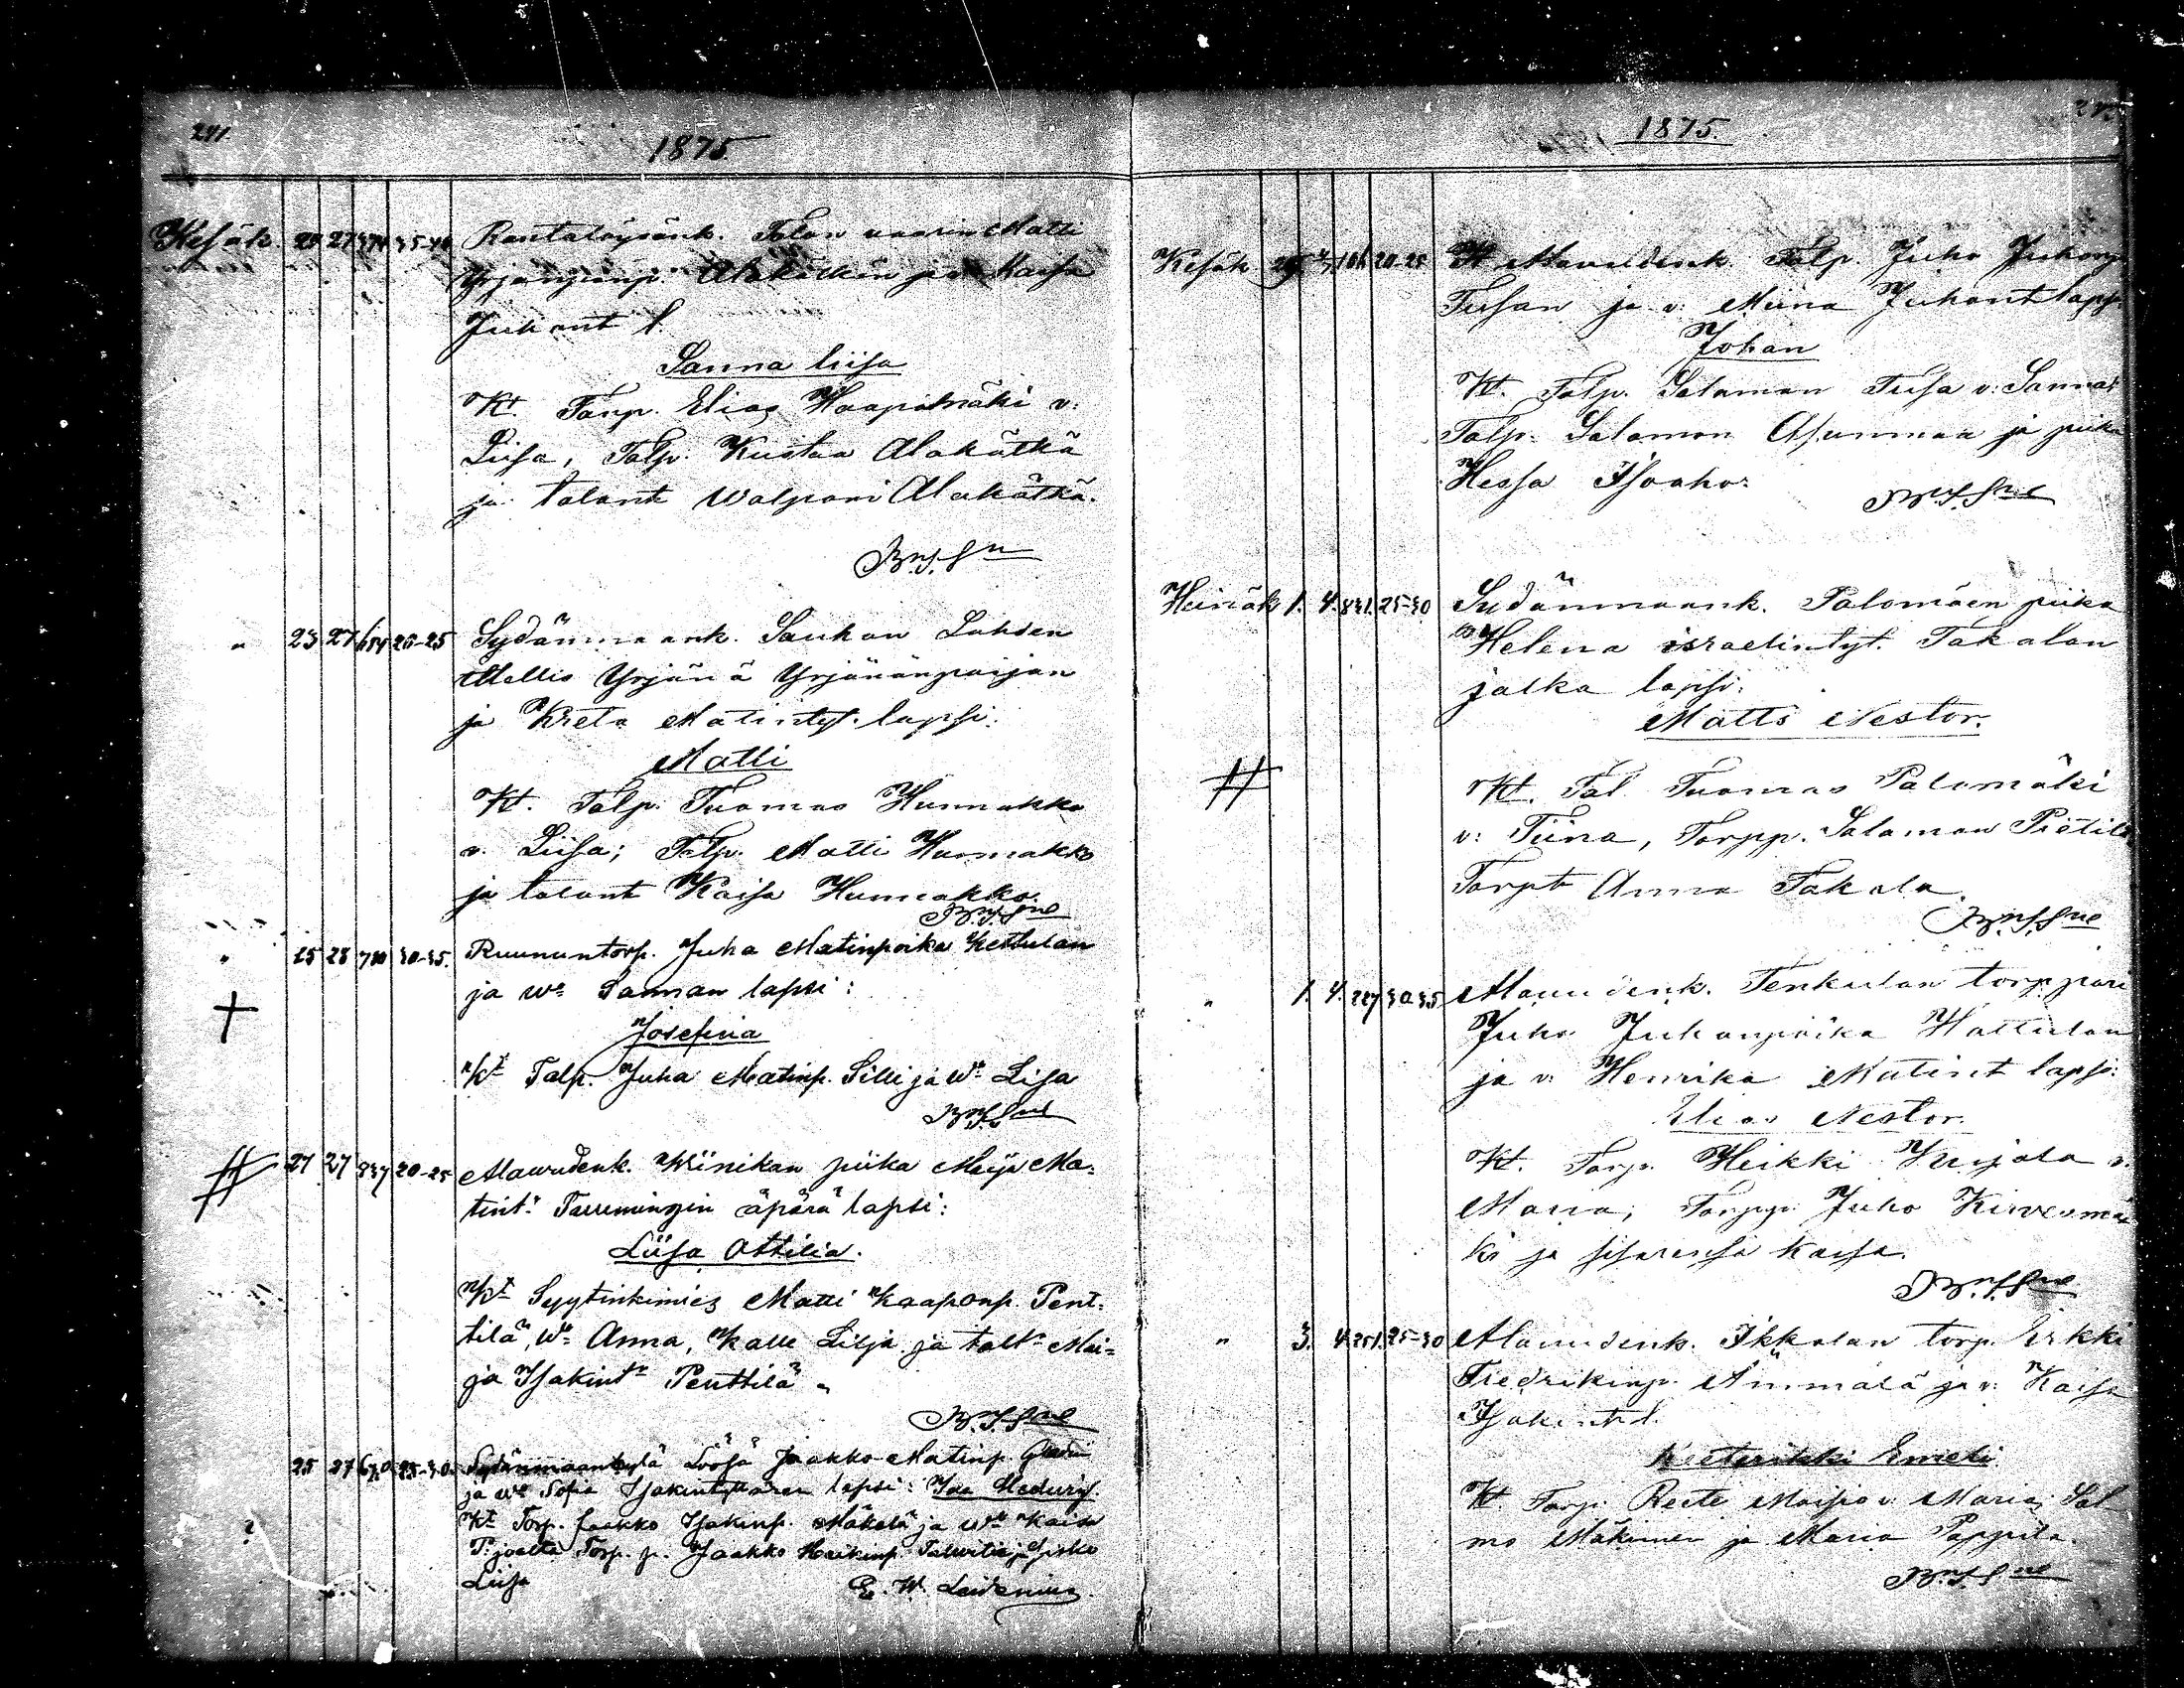 241.
1875.
Kesäk. 23 27 35-40 Rantatöysänk. Talon vaarin Matti
Yrjänänp. Alakätkän ja v. Kaisa
Juhant l.
Sanna Liisa
Kt. Torp. Elias Haapamäki v:
Liisa, Talp. Kustaa Alakätkä
ja talont Walpori Alakätkä.
" 23 27 20-25 Sydänmaank. Saukon Lahden
Mellis Yrjänä Yrjänänpoijan
ja Kreta Matintyt. lapsi:
Matti
Kt. Talp. Tuomas Hunnakko
v. Liisa; Talp. Matti Hunnakko
ja talont Kaisa Hunnakko.
" 25 28 780 30-35. Ruununtorp. Juha Matinpoika Kettulan
ja wo Sannan lapsi:
Josefina
Kt Talp. Juha Matinp. Silli ja wo Lisa
27 27 837 20-25 Alavudenk. Wiinikan piika Maija Ma-
tint. Tarmingin äpärä lapsi:
Liisa Ottilia.
Kt Syytinkimies Matti Kaaponp. Pent-
tilä, wo Anna, Kalle Lilja ja talt Mai-
ja Isakint Penttilä.
25 27 670 25-30 Sydänmaankylä Löösä Jaakko Matinp.
ja wo Sofia Isakintyttären lapsi: Ida Hedvig.
Kt Torp. Jaakko Isakinp. Mäkelä ja wo Kaisa
P:joelta Torp. p. Jaakko Heikinp. Talvitie ja Sisko
Liisa E. W. Leidenius.
1875.
Kesäk 29 4 20-25 Alavudenk. Talp. Juho Juhonp
Tusan ja v. Miina Juhont laps.
Johan
Kt. Talp. Salamon Tusa v: Sanna;
Talp. Salomon Asunmaa ja piika
Hessa Isoaho.
Heinäk 1. 4. 831. 25-30 Sydänmaank. Palomäen piika
Helena israelintyt. Takalan
jalka lapsi:
Matts Nestor.
Kt. Tal Tuomas Palomäki
v: Tiina, Torpp. Salamon Pietilä
Torpt Anna Takala.
" 1. 4. 227 30-35 Alavudenk. Tenkulan torppari
Juho Juhanpoika Hattulan
ja v: Henrika Matint lapsi:
Elias Nestor.
Kt. Torp. Heikki Kujala v:
Maria; Torpp. Juho Kirvesmä
ki ja sisarensa Kaisa.
" 3. 4. 251. 25-30 Alavudenk. Ikkalan torp. Erkki
Fredrikinp. Ämmälä ja v: Kaisa
Isakint l.
Emeli
Kt. Torp. Reete Maisio v. Maria; Sal
mo Mäkinen ja Maria Pappila.